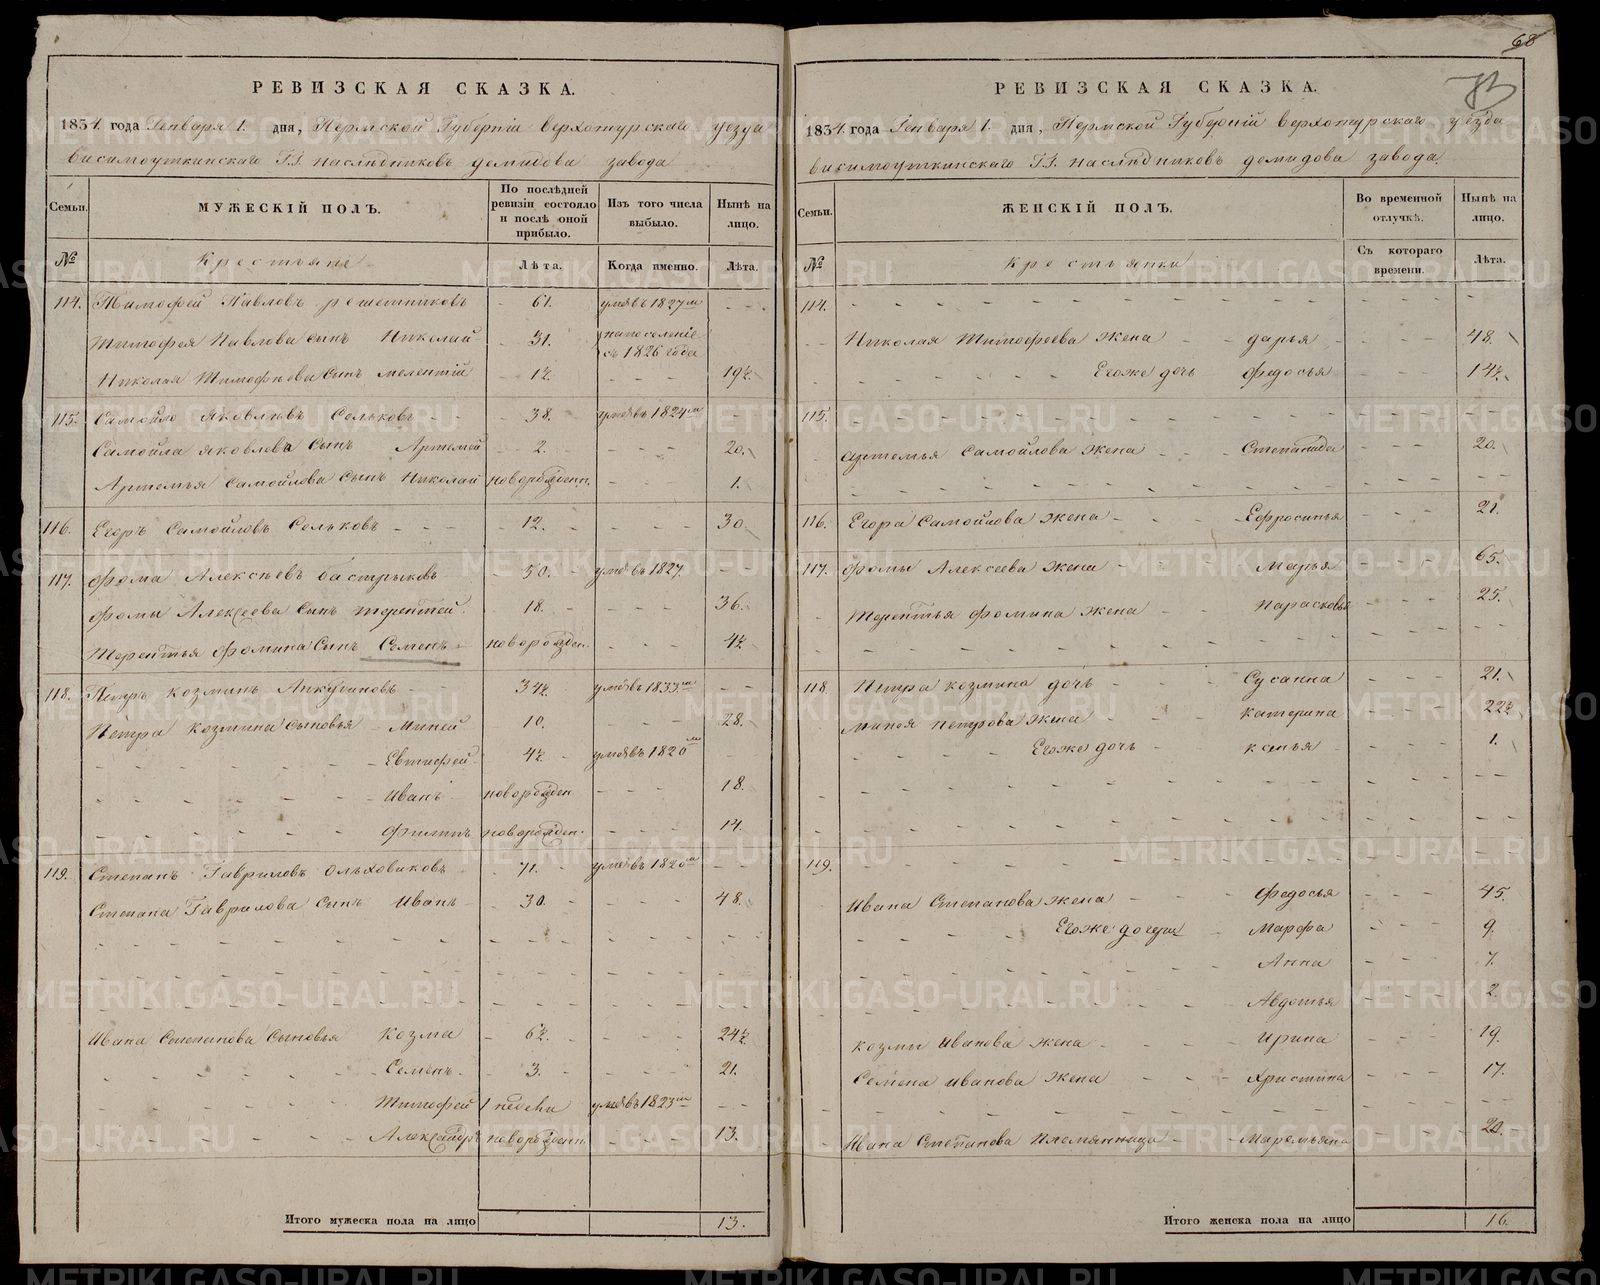 68
РЕВИЗСКАЯ СКАЗКА.
1834. года Генваря 1. дня, Пермской Губерніи верхотурскаго уезда
висимоуткинскаго Г.Г. наслѣдниковъ демидова завода
Семьи.
МУЖЕСКІЙ ПОЛЪ.
По послѣдней ревизіи состояло и послѣ оной прибыло.
Изъ того числа выбыло.
Нынѣ на лицо.
№ Крестьяне Лѣта. Когда именно. Лѣта.
114. Тимофей Павловъ решетниковъ 61. умѣвъ 1827м
Тимофея Павлова сынъ Николай 31. на поселение съ 1826 года
Николая Тимофѣева Сынъ мелентій 1½ 19½
115. Самойло Яковлевъ Сельковъ 38. умѣвъ 1824м
Самойла яковлева Сынъ Артемей 2. 20.
Артемья Самойлова Сынъ Николай новорожден. 1.
116. Егоръ Самойловъ Сельковъ 12. 30.
117. Фома Алексѣевъ бастрыковъ 50. умѣвъ 1827.
Фомы Алексеева Сынъ терентей 18. 36.
Терентья Фомина Сынъ Семенъ новорожден. 4½
118. Петръ козминъ Апкушновъ 34½ умѣвъ 1833м
Петра Козмина Сыновья Миней 10. 28.
Евтифей 4½ умѣвъ 1820м
Иванъ новорожден 18.
Филипъ новорожден. 14.
119. Степанъ Гавриловъ Ольховиковъ 71. умѣвъ 1820м
Степана Гаврилова Сынъ Иванъ 30. 48.
Ивана Степанова Сыновья Козма 6½ 24½
Семенъ 3. 21.
Тимофей 1 недели умѣвъ 1823м
Александръ новорожденн. 13.
Итого мужеска пола на лицо 13.
РЕВИЗСКАЯ СКАЗКА.
1834. года Генваря 1. дня, Пермской Губерній верхотурскаго уезда
висимоуткинскаго Г.Г. наслѣдниковъ демидова завода.
Семьи.
ЖЕНСКІЙ ПОЛЪ.
Во временной отлучкѣ.
Нынѣ на лицо.
№ Крестьянки Съ котораго времени. Лѣта.
114.
Николая Тимофеева жена дарья 48.
Егоже дочь Федосья 14½
115.
Артемья Самойлова жена Степанида 20.
116. Егора Самойлова жена Ефросинья 21.
117. Фомы Алексеева жена Марья 65.
Терентья Фомина жена Парасковья 25.
118. Петра козмина дочь Сусанна 21.
Минея Петрова жена катерина 22½
Егоже дочь ксенья 1.
119.
Ивана Степанова жена Федосья 45.
Егоже дочери Марфа 9.
Анна 7.
Авдотья 2.
Козмы Иванова жена Ирина 19.
Семена Иванова жена Христина 17.
Ивана Степанова Племянница Маремьяна 20.
Итого женска пола на лицо 16.
METRIKI.GASO-URAL.RU